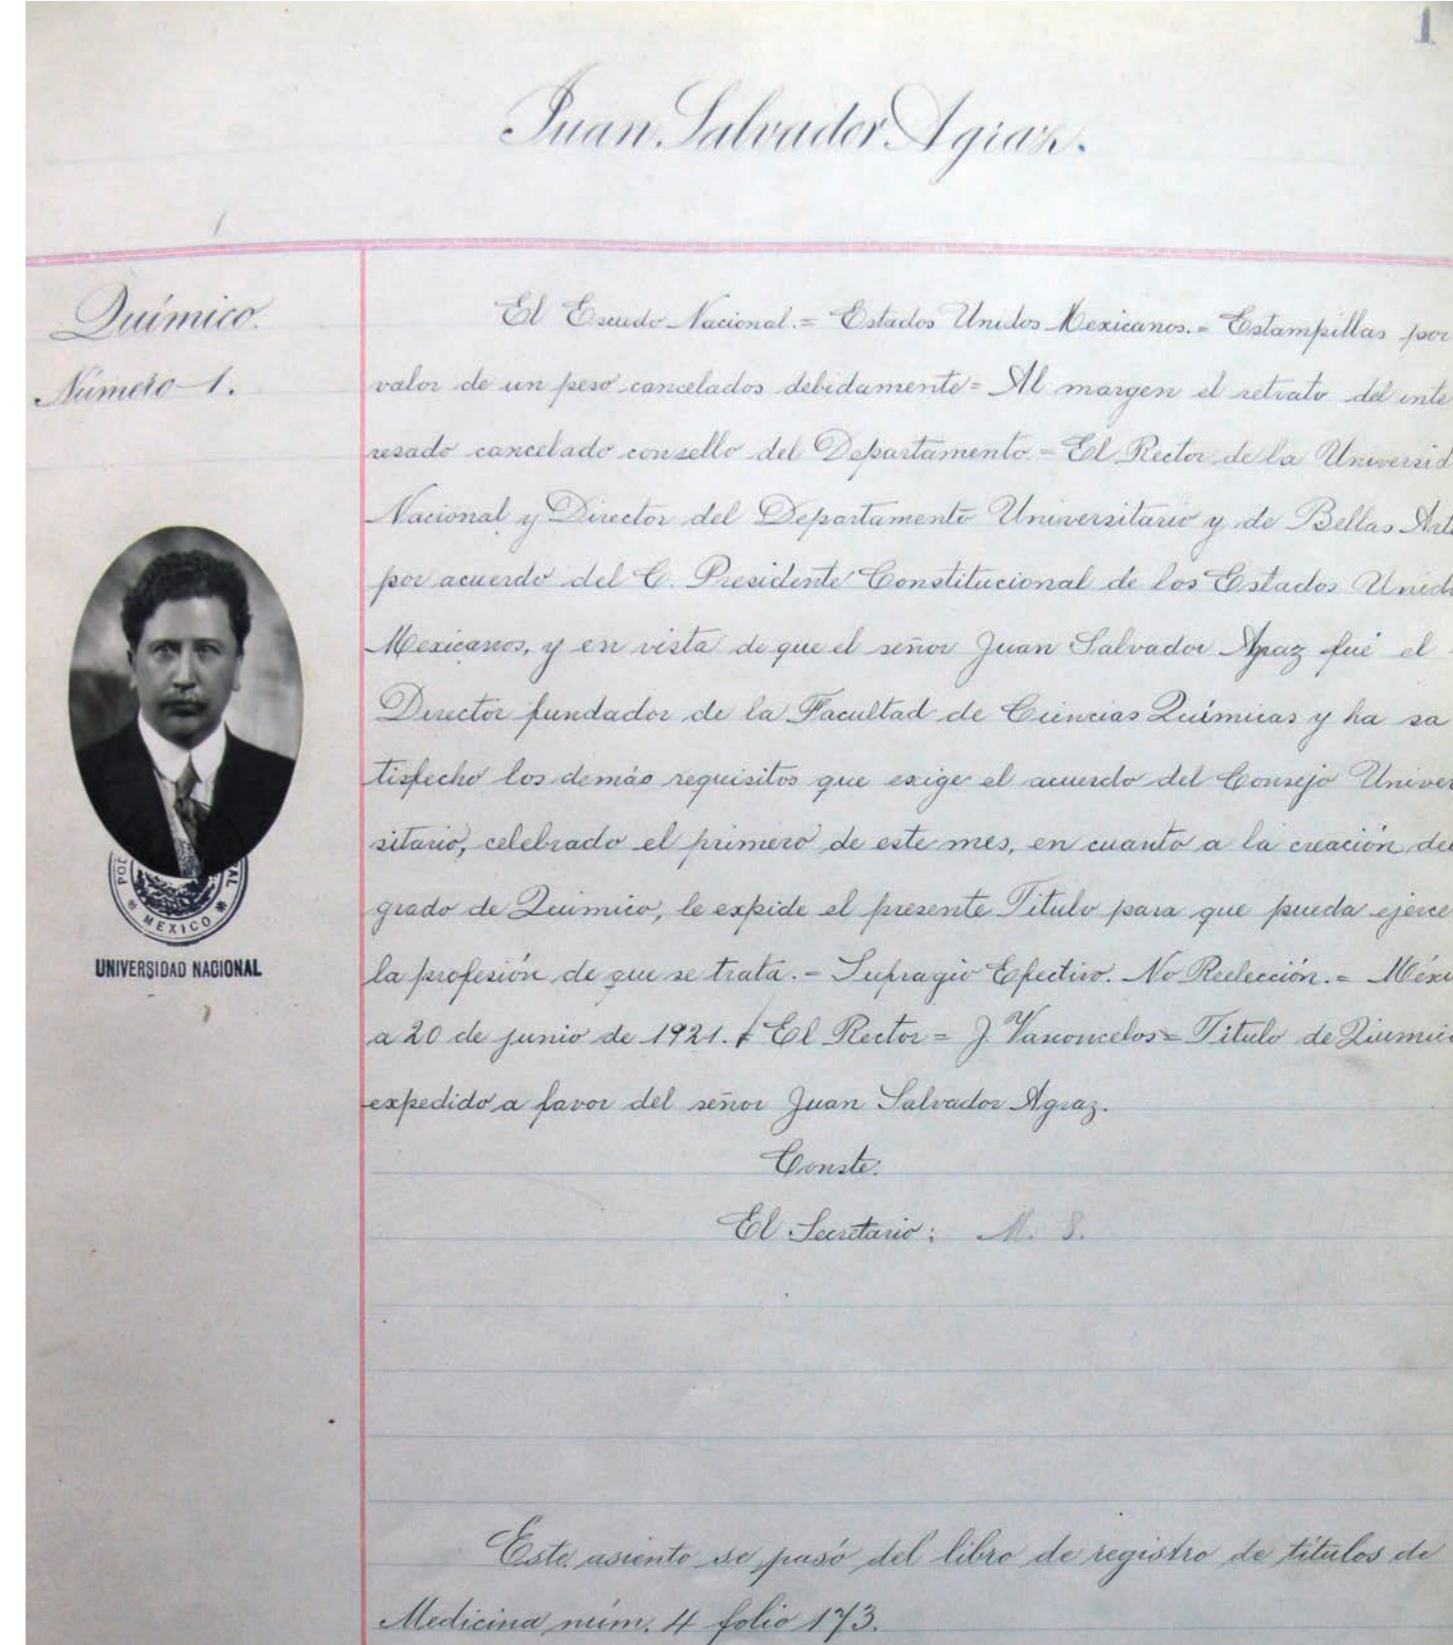 1
Juan Salvador Agraz.
Químico.
Número 1.
El Escudo Nacional.= Estados Unidos Mexicanos.= Estampillas por
valor de un peso cancelados debidamente= Al margen el retrato del inte
resado cancelado con sello del Departamento.= El Rector de la Universid
Nacional y Director del Departamento Universitario y de Bellas Art
por acuerdo del C. Presidente Constitucional de los Estados Unid
Mexicanos, y en vista de que el señor Juan Salvador Agraz fué el
Director fundador de la Facultad de Ciencias Químicas y ha sa
tisfecho los demás requisitos que exige el acuerdo del Consejo Univer
sitario, celebrado el primero de este mes, en cuanto a la creación del
grado de Químico, le expide el presente Titulo para que pueda ejerce
la profesión de que se trata.= Sufragio Efectivo. No Reelección.= Méxi
a 20 de junio de 1921. El Rector= J. Vasconcelos= Titulo de Químic
expedido a favor del señor Juan Salvador Agraz.
Conste.
El Secretario: M. S.
MEXICO
UNIVERSIDAD NACIONAL
Este asiento se pasó del libro de registro de titulos de
Medicina núm. 4 folio 173.